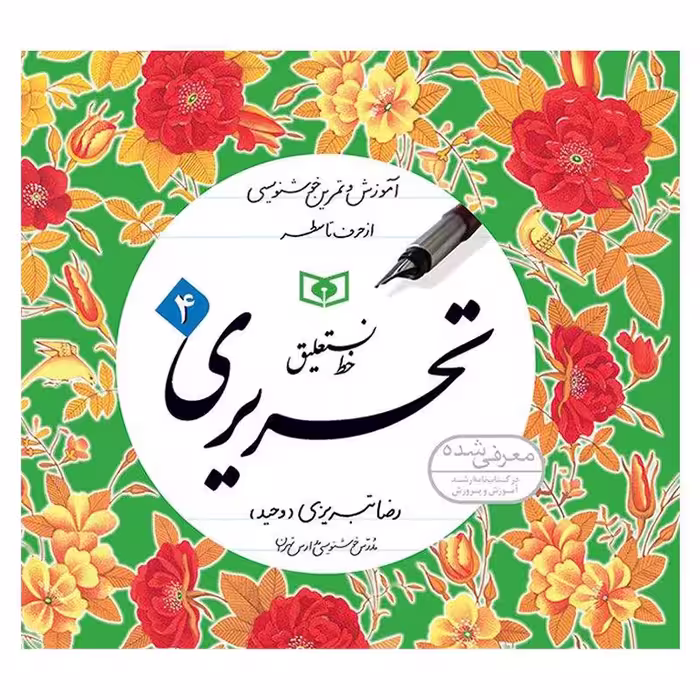 آموزش و تمرین خوشنویسی
از حرف تا سطر
۴
خط نستعلیق
تحریری
معرفی شده
در کتاب‌نامه رشد
آموزش و پرورش
رضا تبریزی (وحید)
مدرس خوشنویسی مدارس تهران